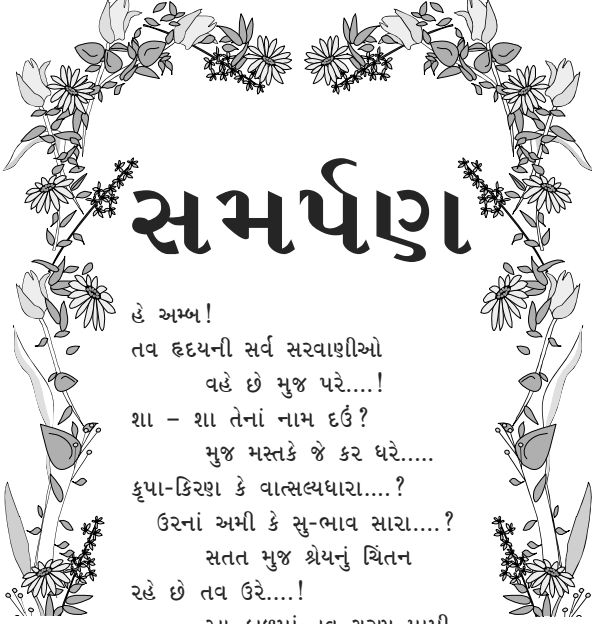 સમર્પણ
હે અમ્બ!
તવ હૃદયની સર્વ સરવાણીઓ
વહે છે મુજ પરે....!
શા – શા તેનાં નામ દઉં?
મુજ મસ્તકે જે કર ધરે.....
કૃપા-કિરણ કે વાત્સલ્યધારા....?
ઉરનાં અમી કે સુ-ભાવ સારા....?
સતત મુજ શ્રેયનું ચિંતન
રહે છે તવ ઉરે....!